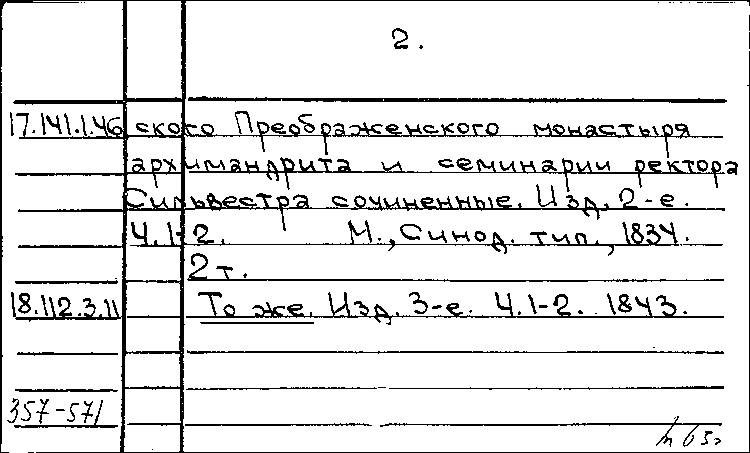 2.
17.141.1.46 ского Преображенского монастыря
архимандрита и семинарии ректора
Сильвестра сочиненные. Изд. 2-е.
Ч. 1-2. М., Синод. тип., 1834.
2 т.
18.112.3.11 То же. Изд. 3-е. Ч. 1-2. 1843.
357-571